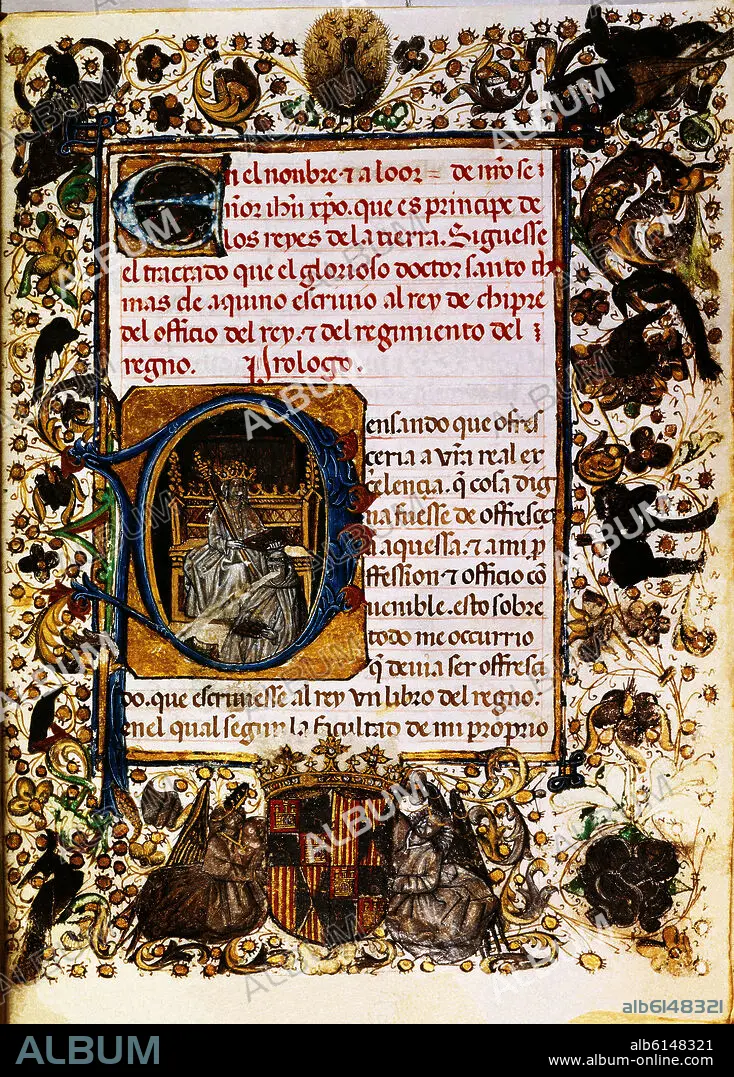 En el nonbre ⁊ a loor = de nr̄o se
ñor ih̄u xp̄o. que es principe de
los reyes de la tierra. Siguesse
el tractado que el glorioso doctor santo th
mas de aquino escriuio al rey de chipre
del officio del rey. ⁊ del regimiento del
regno. Prologo.
Pensando que ofres
ceria a vr̄a real ex
celencia. q̄ cosa dig
na fuesse de offresce
a aquessa. ⁊ a mi p
ffession ⁊ officio cō
uenible. esto sobre
todo me occurrio
q̄ deuia ser offresci
do. que escriuiesse al rey vn libro del regno.
enel qual segun la facultad de mi proprio
alb6148321
ALBUM
alb6148321
www.album-online.com